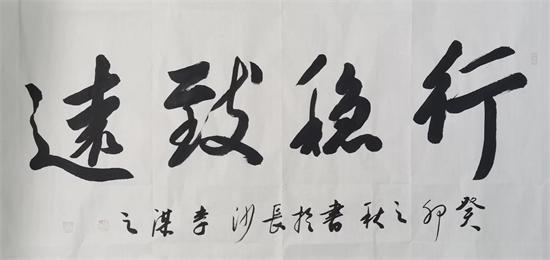 行穩致遠
癸卯之秋書於長沙李謀之